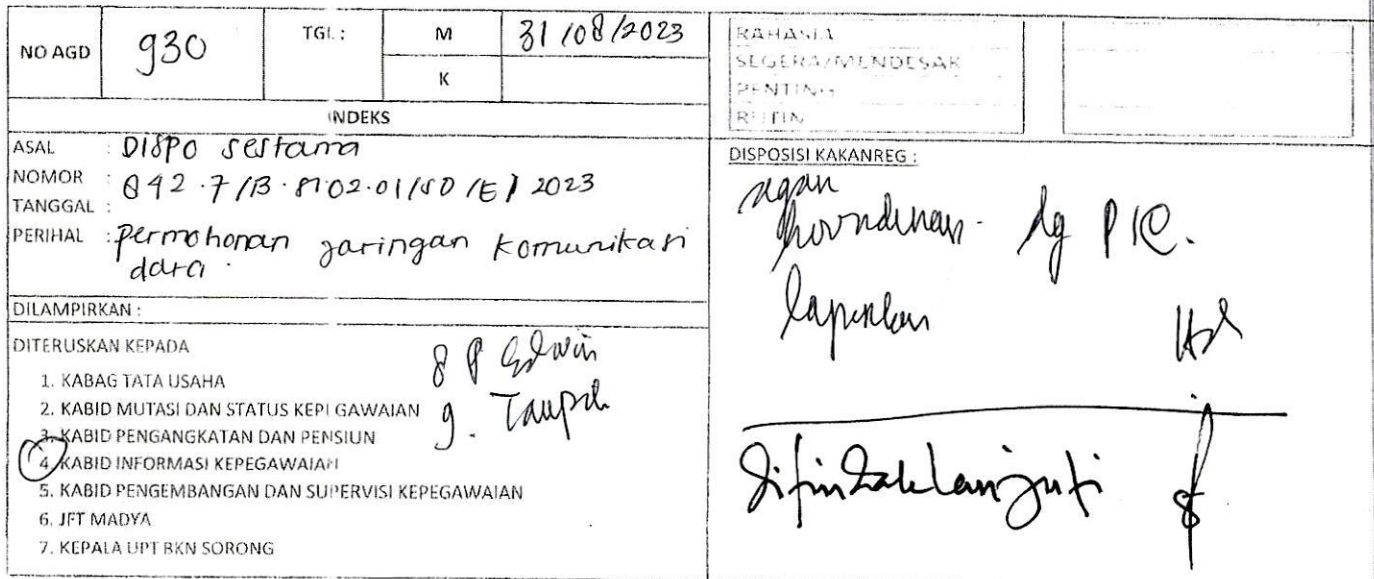 NO AGD 930 TGL : M 31/08/2023
K
INDEKS
ASAL : DISPO sestama
NOMOR : 842.7/B.8102.01/SD/E/2023
TANGGAL :
PERIHAL : permohonan jaringan komunikasi
data.
DILAMPIRKAN :
DITERUSKAN KEPADA
1. KABAG TATA USAHA
2. KABID MUTASI DAN STATUS KEPEGAWAIAN
3. KABID PENGANGKATAN DAN PENSIUN
4. KABID INFORMASI KEPEGAWAIAN
5. KABID PENGEMBANGAN DAN SUPERVISI KEPEGAWAIAN
6. JFT MADYA
7. KEPALA UPT BKN SORONG
8 P Edwin
9. Taupik
RAHASIA
SEGERA/MENDESAK
PENTING
RUTIN
DISPOSISI KAKANREG :
agar
dg PIC.
laporkan
ditindaklanjuti